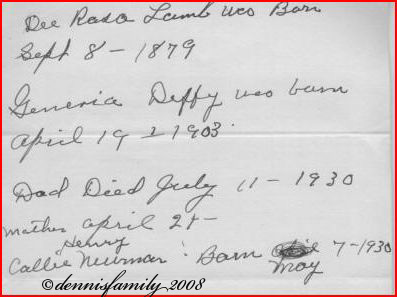 Dee Rasa Lamb was Born
Sept 8 - 1879
Generia Deffy was born
April 19 - 1903.
Dad Died July 11 - 1930
mother April 21 -
Henry
Callie Newman : Born 7 - 1930
May
©dennisfamily 2008